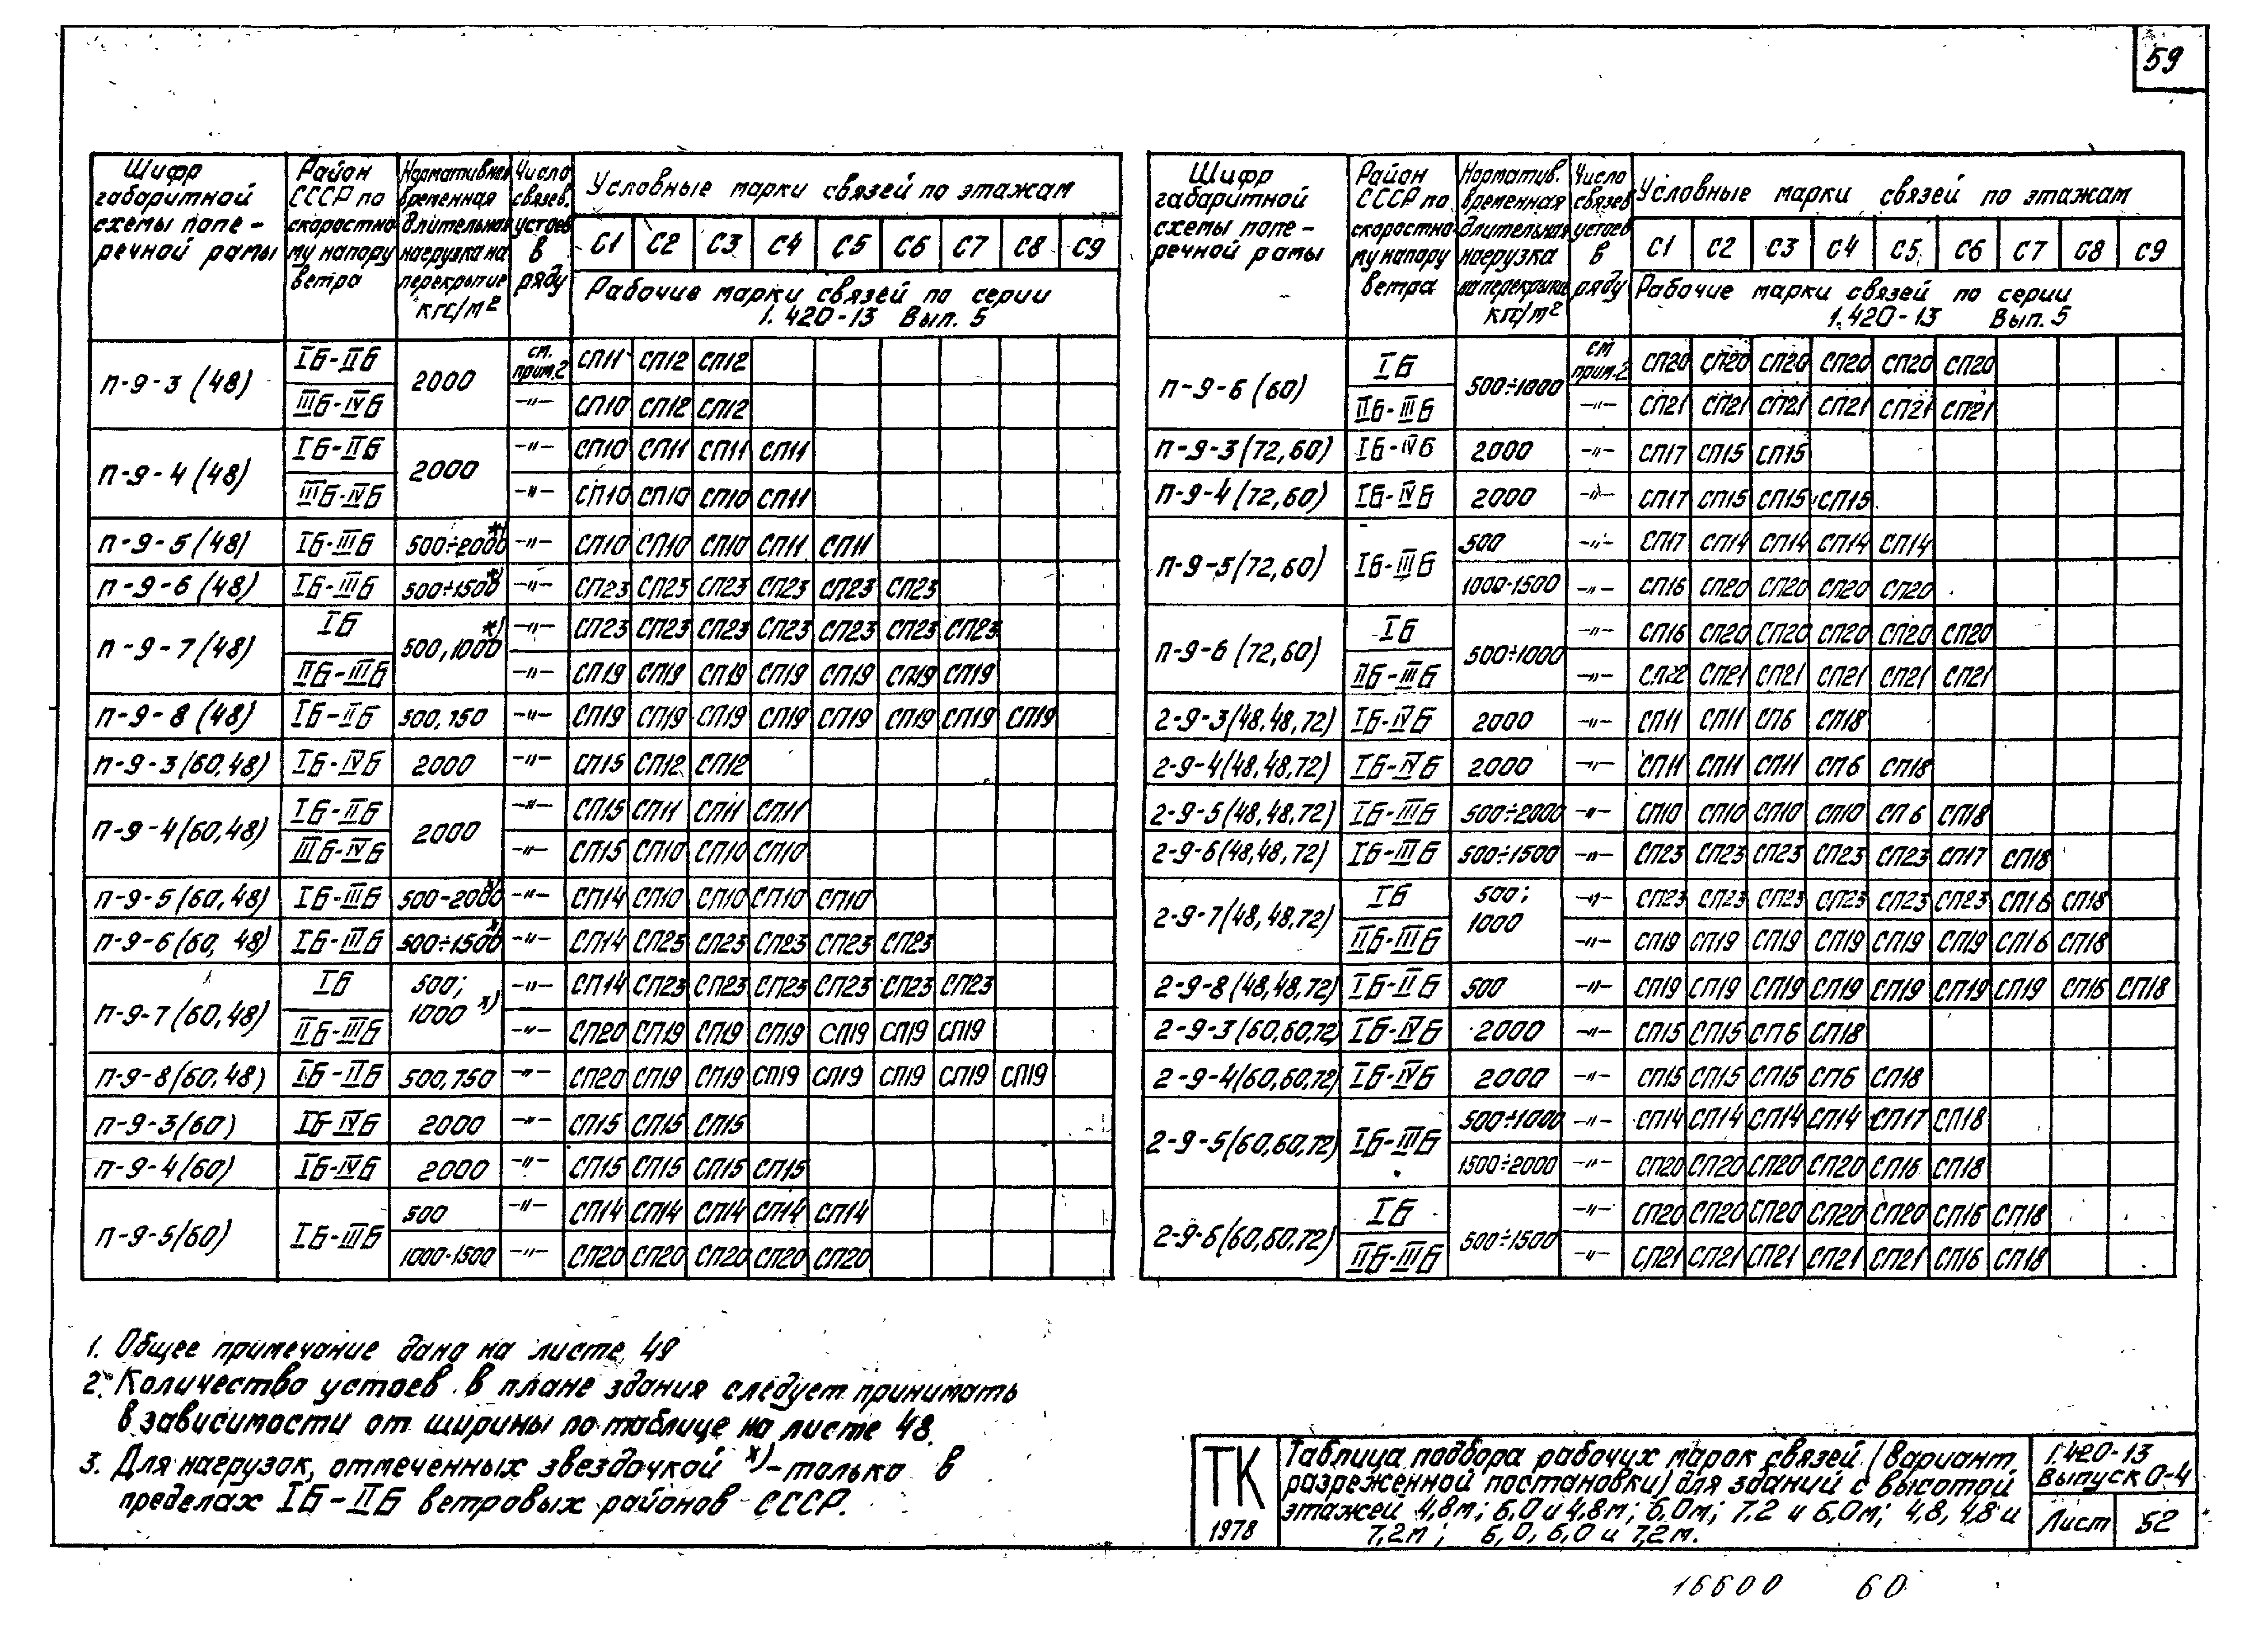 59
Шифр габаритной схемы попе- речной рамы
Район СССР по скоростно- му напору ветра
Нормативная временная длительная нагрузка на перекрытие кгс/м²
Число связев. устоев в ряду
Условные марки связей по этажам
С1 С2 С3 С4 С5 С6 С7 С8 С9
Рабочие марки связей по серии
1.420-13 Вып. 5
п-9-3 (48) IБ-IIБ 2000 см. прим.2 СП11 СП12 СП12
IIIБ-IVБ -"- СП10 СП12 СП12
п-9-4 (48) IБ-IIБ 2000 -"- СП10 СП11 СП11 СП11
IIIБ-IVБ -"- СП10 СП10 СП10 СП11
п-9-5 (48) IБ-IIIБ 500÷2000 *) -"- СП10 СП10 СП10 СП11 СП11
п-9-6 (48) IБ-IIIБ 500÷1500 *) -"- СП23 СП23 СП23 СП23 СП23 СП23
п-9-7 (48) IБ 500,1000 *) -"- СП23 СП23 СП23 СП23 СП23 СП23 СП23
IIБ-IIIБ -"- СП19 СП19 СП19 СП19 СП19 СП19 СП19
п-9-8 (48) IБ-IIБ 500,750 -"- СП19 СП19 СП19 СП19 СП19 СП19 СП19 СП19
п-9-3(60,48) IБ-IVБ 2000 -"- СП15 СП12 СП12
п-9-4(60,48) IБ-IIБ 2000 -"- СП15 СП11 СП11 СП11
IIIБ-IVБ -"- СП15 СП10 СП10 СП10
п-9-5(60,48) IБ-IIIБ 500-2000 х) -"- СП14 СП10 СП10 СП10 СП10
п-9-6(60, 48) IБ-IIIБ 500÷1500 х) -"- СП14 СП23 СП23 СП23 СП23 СП23
п-9-7(60,48) IБ 500; 1000 х) -"- СП14 СП23 СП23 СП23 СП23 СП23 СП23
IIБ-IIIБ -"- СП20 СП19 СП19 СП19 СП19 СП19 СП19
п-9-8(60,48) IБ-IIБ 500,750 -"- СП20 СП19 СП19 СП19 СП19 СП19 СП19 СП19
п-9-3(60) IБ-IVБ 2000 -"- СП15 СП15 СП15
п-9-4(60) IБ-IVБ 2000 -"- СП15 СП15 СП15 СП15
п-9-5(60) IБ-IIIБ 500 -"- СП14 СП14 СП14 СП14 СП14
1000-1500 -"- СП20 СП20 СП20 СП20 СП20
Шифр габаритной схемы попе- речной рамы
Район СССР по скоростно- му напору ветра
Норматив. временная длительная нагрузка на перекрытие кгс/м²
Число связев. устоев в ряду
Условные марки связей по этажам
С1 С2 С3 С4 С5 С6 С7 С8 С9
Рабочие марки связей по серии
1.420-13 Вып.5
п-9-6 (60) IБ 500÷1000 см прим.2 СП20 СП20 СП20 СП20 СП20 СП20
IIБ-IIIБ -"- СП21 СП21 СП21 СП21 СП21 СП21
п-9-3(72,60) IБ-IVБ 2000 -"- СП17 СП15 СП15
п-9-4(72,60) IБ-IVБ 2000 -"- СП17 СП15 СП15 СП15
п-9-5(72,60) IБ-IIIБ 500 -"- СП17 СП14 СП14 СП14 СП14
1000-1500 -"- СП16 СП20 СП20 СП20 СП20
п-9-6 (72,60) IБ 500÷1000 -"- СП16 СП20 СП20 СП20 СП20 СП20
IIБ-IIIБ -"- СП22 СП21 СП21 СП21 СП21 СП21
2-9-3(48,48,72) IБ-IVБ 2000 -"- СП11 СП11 СП6 СП18
2-9-4(48,48,72) IБ-IVБ 2000 -"- СП11 СП11 СП11 СП6 СП18
2-9-5(48,48,72) IБ-IIIБ 500÷2000 -"- СП10 СП10 СП10 СП10 СП6 СП18
2-9-6(48,48,72) IБ-IIIБ 500÷1500 -"- СП23 СП23 СП23 СП23 СП23 СП17 СП18
2-9-7(48,48,72) IБ 500; 1000 -"- СП23 СП23 СП23 СП23 СП23 СП23 СП16 СП18
IIБ-IIIБ -"- СП19 СП19 СП19 СП19 СП19 СП19 СП16 СП18
2-9-8(48,48,72) IБ-IIБ 500 -"- СП19 СП19 СП19 СП19 СП19 СП19 СП19 СП16 СП18
2-9-3(60,60,72) IБ-IVБ 2000 -"- СП15 СП15 СП6 СП18
2-9-4(60,60,72) IБ-IVБ 2000 -"- СП15 СП15 СП15 СП6 СП18
2-9-5(60,60,72) IБ-IIIБ 500÷1000 -"- СП14 СП14 СП14 СП14 СП17 СП18
1500÷2000 -"- СП20 СП20 СП20 СП20 СП16 СП18
2-9-6(60,60,72) IБ 500÷1500 -"- СП20 СП20 СП20 СП20 СП20 СП16 СП18
IIБ-IIIБ -"- СП21 СП21 СП21 СП21 СП21 СП16 СП18
1. Общее примечание дано на листе 49
2. Количество устоев в плане здания следует принимать
в зависимости от ширины по таблице на листе 48.
3. Для нагрузок, отмеченных звездочкой х)-только в
пределах IБ-IIБ ветровых районов СССР.
ТК
1978
Таблица подбора рабочих марок связей (Вариант
разреженной постановки) для зданий с высотой
этажей 4,8м; 6,0 и 4,8м; 6,0м; 7,2 и 6,0м; 4,8, 4,8 и
7,2м; 6,0, 6,0 и 7,2м.
1.420-13
Выпуск 0-4
Лист 52
16600 60